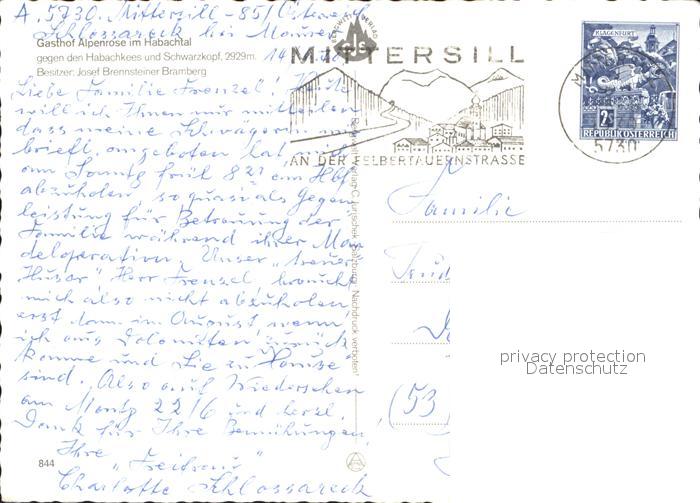 A. 5730. Mittersill - 85/
Schlossareck bei
Gasthof Alpenrose im Habachtal
gegen den Habachkees und Schwarzkopf, 2929m.
Besitzer: Josef Brennsteiner Bramberg
Liebe Familie Frenzel!
will ich Ihnen nur mitteilen
dass meine Schwägerin
brieft. angeboten hat, mich
am Sonntg früh 8 Hbf.
abzuholen, so quasi als Gegen
leistung für Betreuung der
Familie während ihrer Man
deloperation. Unser "treuer
Husar", Herr Frenzel, braucht
mich also nicht abzuholen,
erst dann im August, wenn
ich aus Dolomitten zurück
komme und Sie zu Hause
sind. Also auf Wiedersehen
am Montg 22/6 und herzl.
Dank für Ihre Bemühungen,
Ihre
"Freifrau"
Charlotte Schlossareck
844
MITTERSILL
AN DER FELBERTAUERNSTRASSE
KLAGENFURT
2S
REPUBLIK ÖSTERREICH
5730
Nachdruck verboten!
Familie
(53
privacy protection
Datenschutz